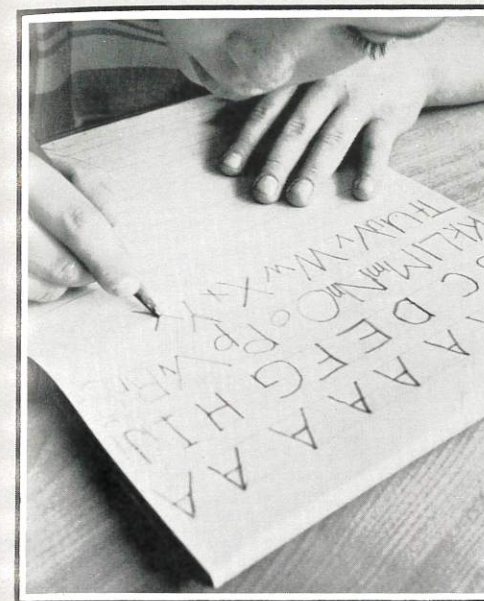 A A A A A A A
C D E F G H I J
K k L l M m N n O o P p R r
T t U u V v W w X x Y